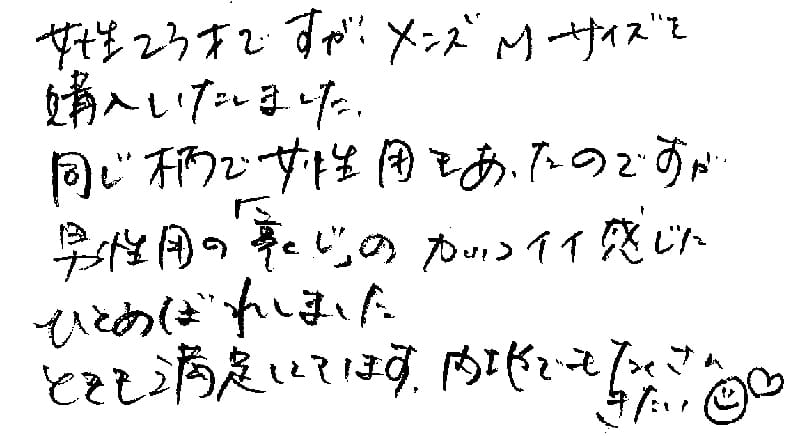 女性23才ですが、メンズMサイズを
購入いたしました。
同じ柄で女性用もあったのですが
男性用の「裏とじ」のカッコイイ感じに
ひとめぼれしました
とても満足してます。内地でもたくさん
きたい